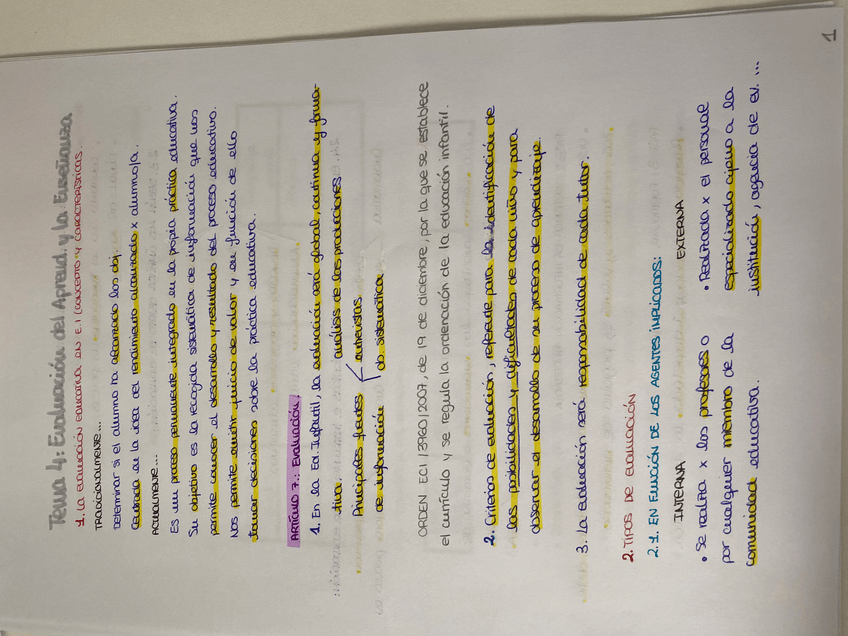 Tema 4: Evaluación del Aprend. y la Enseñanza
1. La evaluación educativa en E.I (concepto y características
TRADICIONALMENTE...
Determinar si el alumno ha alcanzado los obj.
Centrada en la idea del rendimiento alcanzado x alumno/a.
ACTUALMENTE...
Es un proceso permanente, integrado en la propia práctica educativa.
Su objetivo es la recogida sistemática de información que nos
permite conocer el desarrollo y resultado del proceso educativo.
Nos permite emitir juicio de valor y en función de ello
tomar decisiones sobre la práctica educativa.
ARTÍCULO 7.: Evaluación.
1. En la Ed. Infantil, la evaluación será global, continua y forma-
tiva.
análisis de las producciones
Principales fuentes
entrevistas
de información
ob. sistemática
ORDEN ECI/3960/2007, de 19 de diciembre, por la que se establece
el currículo y se regula la ordenación de la educación infantil.
2. Criterios de evaluación, referente para la identificación de
las posibilidades y dificultades de cada niño y para
observar el desarrollo de su proceso de aprendizaje.
3. La evaluación será responsabilidad de cada tutor.
2. TIPOS DE EVALUACIÓN
2.1. EN FUNCIÓN DE LOS AGENTES IMPLICADOS:
INTERNA
• Se realiza x los profesores o
por cualquier miembro de la
comunidad educativa.
EXTERNA
• Realizada x el personal
especializado ajeno a la
institución, agencia de ev. ...
1